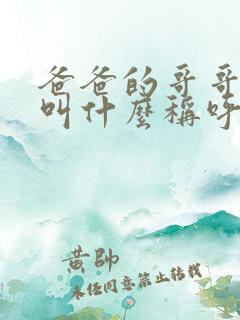 爸爸的哥哥
叫什麼稱呼
黄帥
未经同意禁止转载